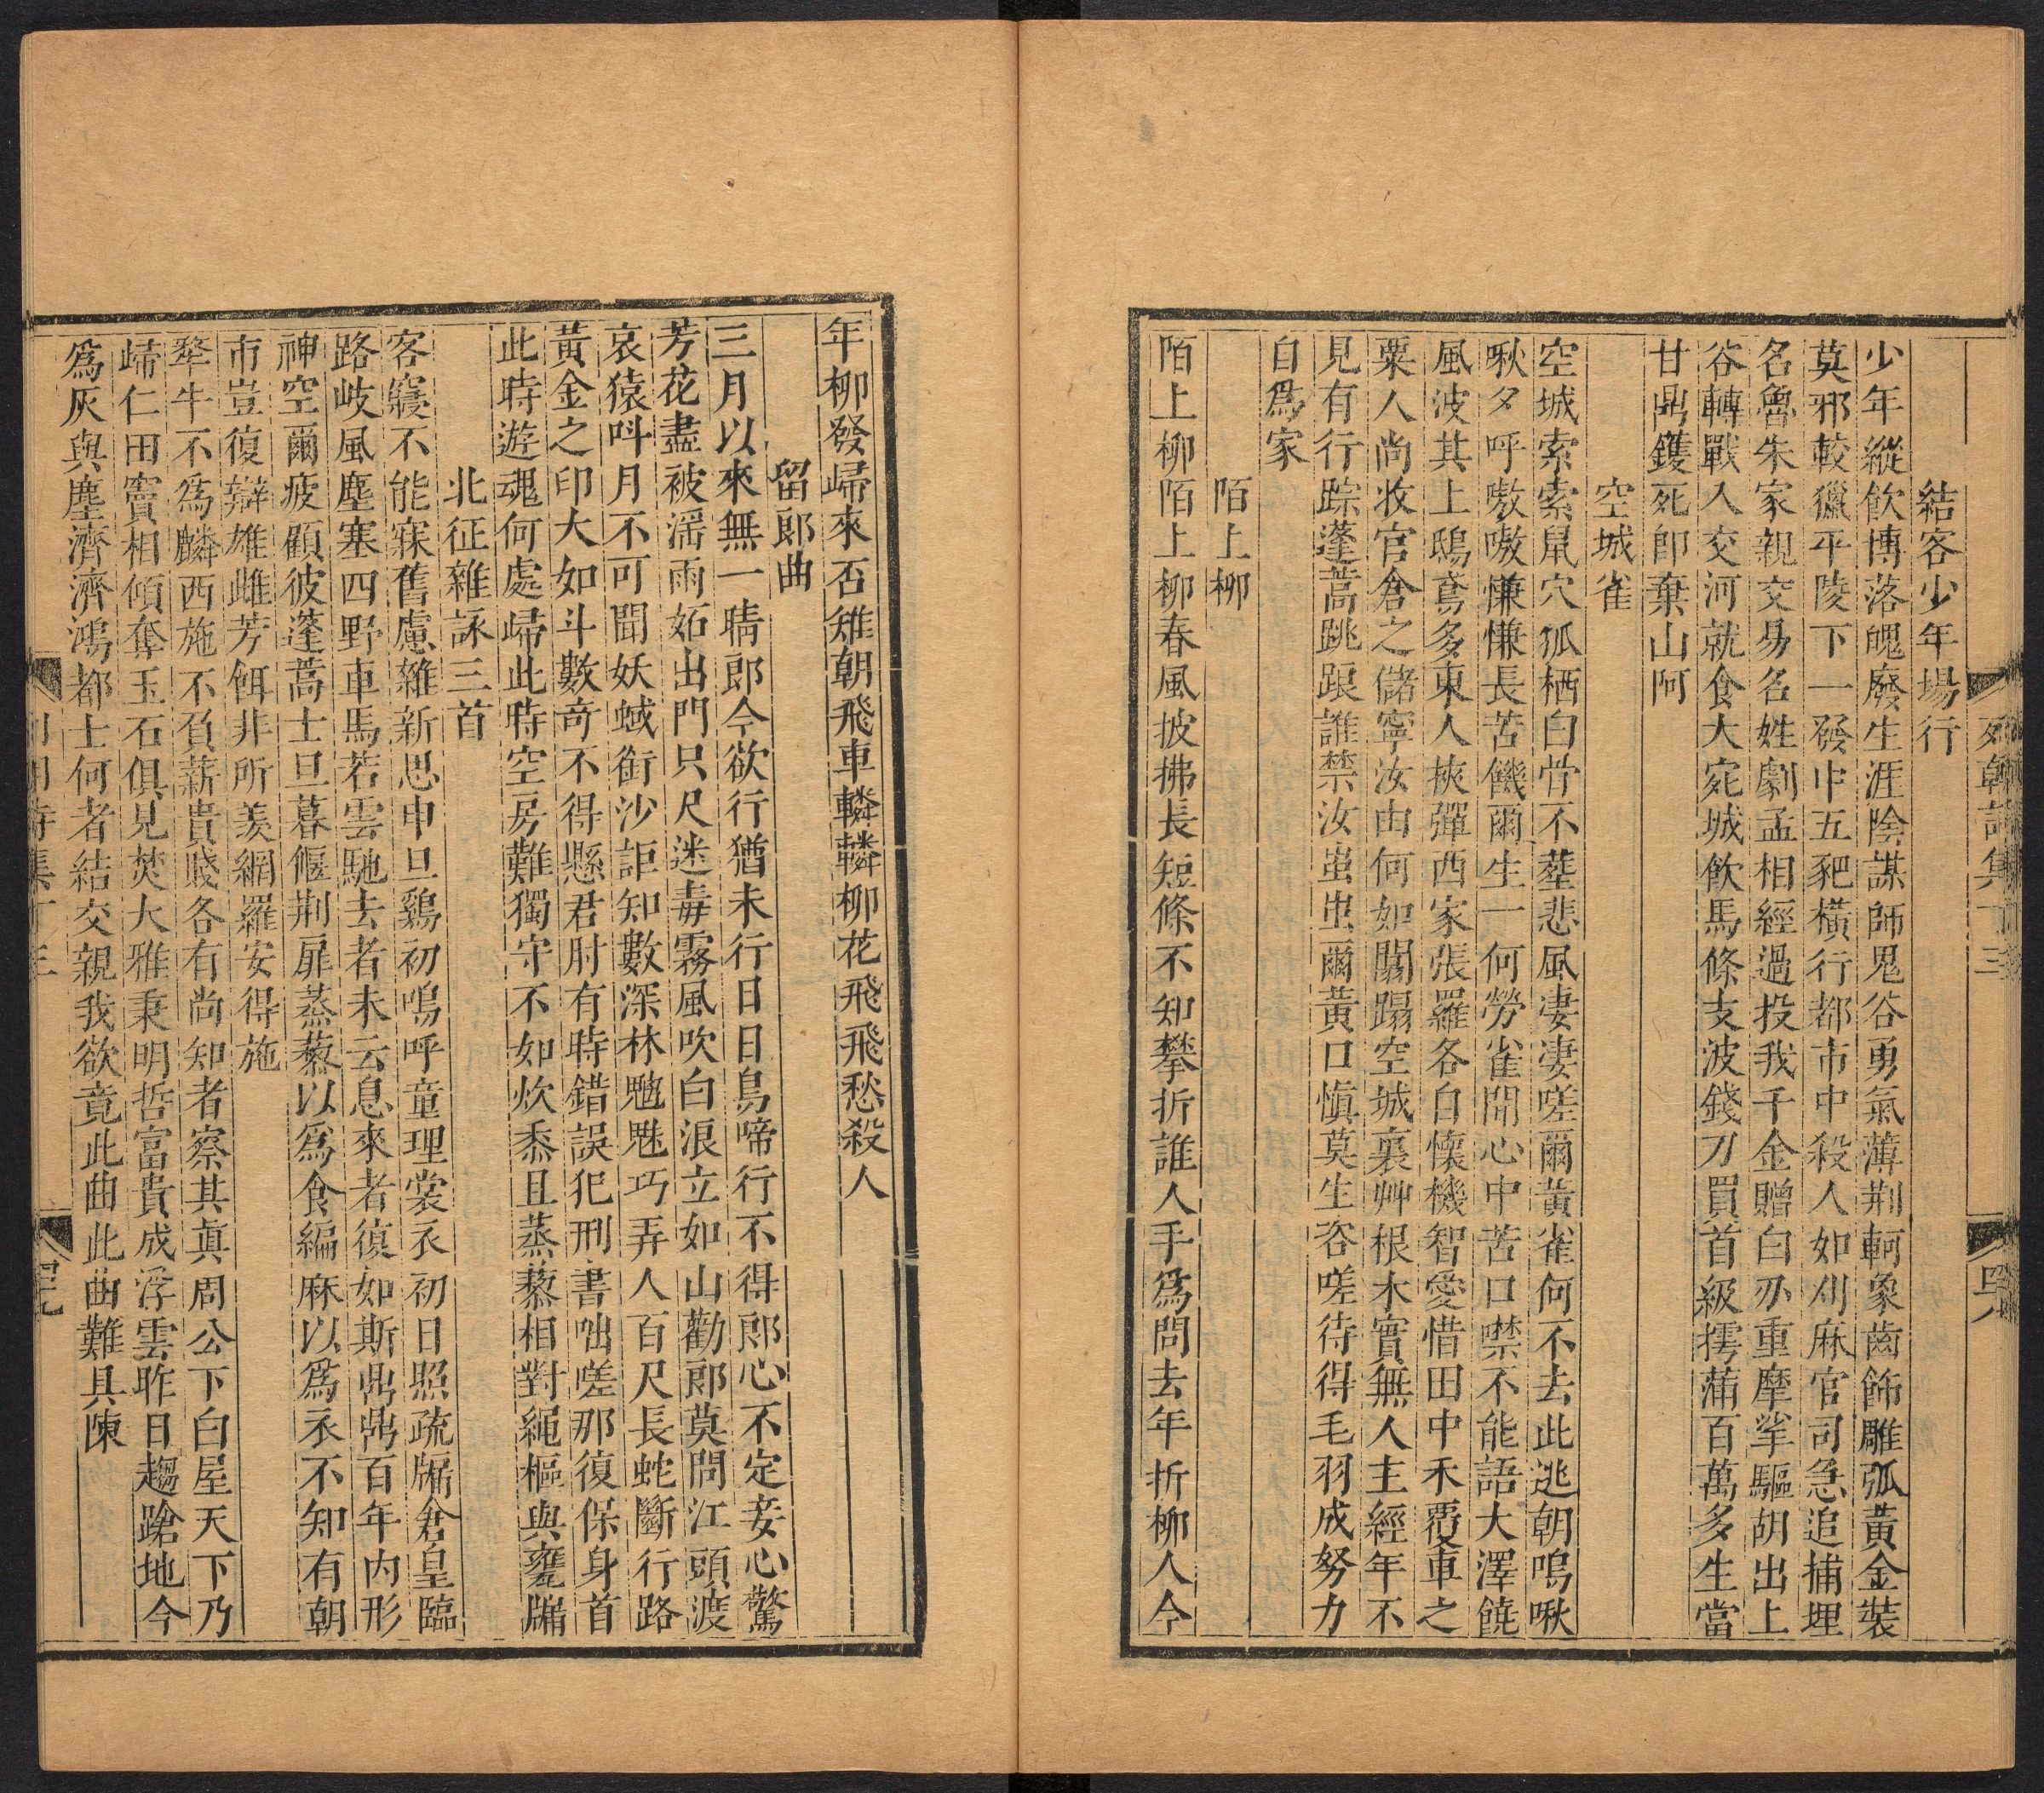 結客少年場行
少年縱飲博落魄廢生涯陰謀師鬼谷勇氣薄荆軻象齒飾雕弧黃金裝
莫邪較獵平陵下一發中五豝橫行都市中殺人如刈麻官司急追捕埋
名魯朱家親交易名姓劇孟相經過投我千金贈白刃重摩挲驅胡出上
谷轉戰入交河就食大宛城飲馬條支波錢刀買首級摴蒲百萬多生當
甘鼎鑊死卽棄山阿
空城雀
空城索索鼠穴狐栖白骨不塟悲風凄凄嗟爾黃雀何不去此逃朝鳴啾
啾夕呼嗷嗷慊慊長苦饑爾生一何勞雀聞心中苦口噤不能語大澤饒
風波其上鴟鳶多東人挾彈西家張羅各自懷機智愛惜田中禾覆車之
粟人尚收官倉之儲寧汝由何如關蹋空城裏艸根木實無人主經年不
見有行踪蓬蒿跳踉誰禁汝蚩蚩爾黃口愼莫生咨嗟待得毛羽成努力
自爲家
陌上柳
陌上柳陌上柳春風披拂長短條不知攀折誰人手爲問去年折柳人今
年柳發歸來否雉朝飛車轔轔柳花飛飛愁殺人
留郎曲
三月以來無一晴郎今欲行猶未行日日鳥啼行不得郎心不定妾心驚
芳花盡被滛雨妬出門只尺迷毒霧風吹白浪立如山勸郎莫問江頭渡
哀猿呌月不可聞妖蜮銜沙詎知數深林魑魅巧弄人百尺長蛇斷行路
黃金之印大如斗數奇不得懸君肘有時錯誤犯刑書咄嗟那復保身首
此時遊魂何處歸此時空房難獨守不如炊黍且蒸藜相對繩樞與甕牖
北征雜詠三首
客寢不能寐舊慮雜新思申旦鷄初鳴呼童理裳衣初日照疏牖倉皇臨
路岐風塵塞四野車馬若雲馳去者未云息來者復如斯鼎鼎百年内形
神空爾疲顧彼蓬蒿士旦暮偃荆扉蒸藜以爲食編麻以爲衣不知有朝
市豈復辯雄雌芳餌非所羨網羅安得施
犂牛不爲麟西施不負薪貴賤各有尚知者察其眞周公下白屋天下乃
歸仁田竇相傾奪玉石俱見焚大雅秉明哲富貴成浮雲昨日趨蹌地今
爲灰與塵濟濟鴻都士何者結交親我欲竟此曲此曲難具陳